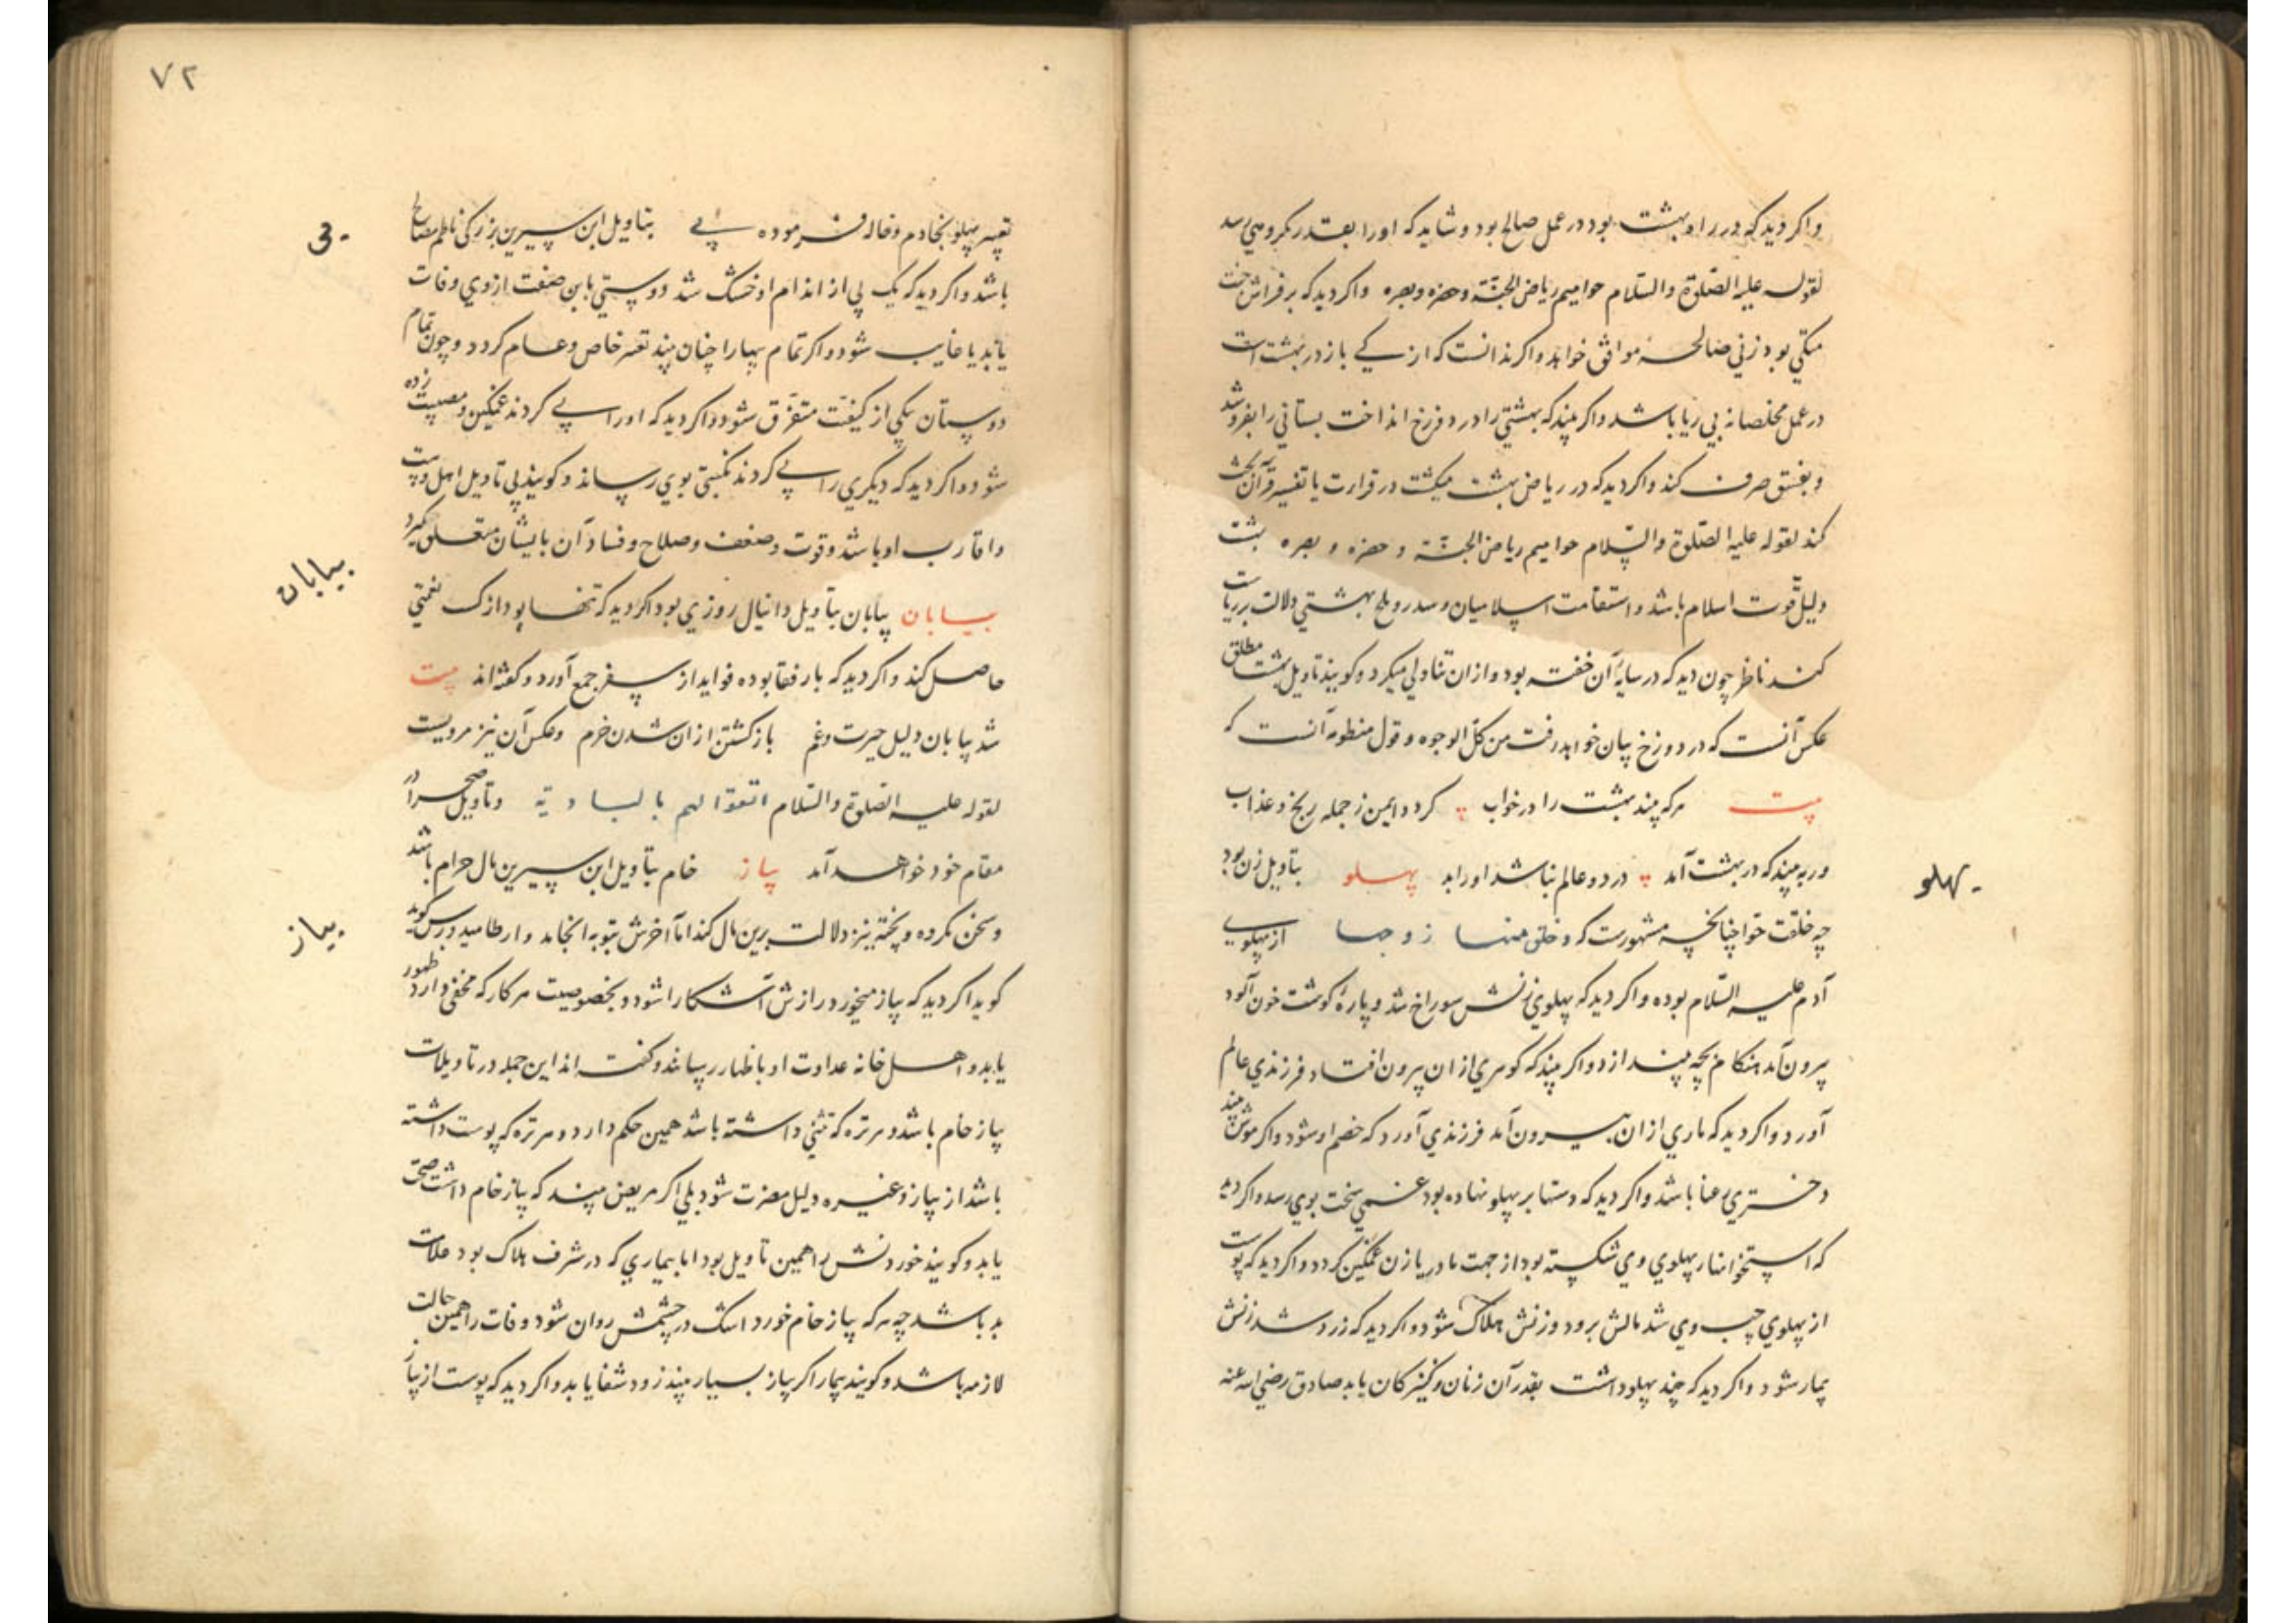 واکر دید که در راه بهشت بود در عمل صالح بود و شاید که او را بقدر مکروهی رسد
لقوله علیه الصلوة والسلام حوامیم ریاض الجنة وحمزه وبصره واکر دید که بر فراش جنت
متکی بود زنی صالحه موافق خواهد واکر ندانست که از کی باز در بهشت است
در عمل مخلصانه بی ریا باشد واکر بیند که بهشتی را در دوزخ انداخت بستانی را بفروشد
و بفسق صرف کند واکر دید که در ریاض بهشت میکشت در قراءت یا تفسیر قرآن بحث
کند لقوله علیه الصلوة والسلام حوامیم ریاض الجنة و حمزه و بصره بهشت
دلیل قوت اسلام باشد و استقامت اسلامیان و سدر و طلح بهشتی دلالت بر ریاست
کند ناظر چون دید که در سایه آن خفته بود و ازان تناولی میکرد و کویند تاویل بهشت مطلق
عکس آنست که در دوزخ بیان خواهد رفت من کل الوجوه و قول منظومه آنست که
بیت هرکه بیند بهشت را در خواب کردد ایمن ز جمله رنج و عذاب
ور به بیند که در بهشت آمد در دو عالم نباشد او را بد پهلو بتاویل زن بود
پهلو
چه خلقت حوا چنانچه مشهورست که و خلق منها زوجها از پهلوی
آدم علیه السلام بوده واکر دید که پهلوی زنش سوراخ شد و پاره کوشت خون آلود
بیرون آمد هنکام بچه بیندازد واکر بیند که کوهری ازان بیرون افتاد فرزندی عالم
آورد واکر دید که ماری ازان بیرون آمد فرزندی آورد که خصم او شود واکر موش بیند
دختری رعنا باشد واکر دید که دستها بر پهلو نهاده بود غمی سخت بوی رسد واکر دید
که استخوانهار پهلوی وی شکسته بود از جهت مادر یا زن غمکین کردد واکر دید که پوست
از پهلوی چپ وی شد مالش برود و زنش هلاک شود واکر دید که زرد شد زنش
بیمار شود واکر دید که چند پهلو داشت بقدر آن زنان و کنیزکان یابد صادق رضی الله عنه
٧٢
تعبیر پهلو بخادم و خاله فرموده پی بتاویل ابن سیرین بزرکی ناظم مصالح
پی
باشد واکر دید که یک پی از اندام او خشک شد دوستی باین صفت از وی وفات
یابد یا غایب شود واکر تمام پیها را چنان بیند تعبیر خاص و عام کردد و چون تمام
دوستان یکی از کیفیت متفرق شود واکر دید که او را پی کردند غمکین و مصیبت زده
شود واکر دید که دیکری را پی کردند نکبتی بوی رساند و کویند پی تاویل اهل و بیت
و اقارب او باشد و قوت و ضعف و صلاح و فساد آن بایشان متعلق کیرد
بیابان
بیابان بیابان بتاویل دانیال روزی بود اکر دید که تنها بود ازک نعمتی
حاصل کند واکر دید که با رفقا بوده فواید از سفر جمع آورد و کفته اند بیت
شد بیابان دلیل حیرت و غم باز کشتن ازان شدن خرم و عکس آن نیز مرویست
لقوله علیه الصلوة والسلام وتاویل صحرا در
مقام خود خواهد آمد پیاز خام بتاویل ابن سیرین مال حرام باشد
پیاز
و سخن مکرده و پخته نیز دلالت برین مال کند اما آخرش بتوبه انجامد و ارطامیدورس کوید
کوید اکر دید که پیاز میخورد رازش آشکارا شود و بخصوصیت هر کار که مخفی دارد ظهور
یابد و اهل خانه عداوت او باظهار رسانند و کفته اند این جمله در تاویلات
پیاز خام باشد و هر تره که تیزی داشته باشد همین حکم دارد و هر تره که پوست داشته
باشد از پیاز و غیره دلیل مضرت شود بلی اکر مریض بیند که پیاز خام داشت صحت
یابد و کویند خوردنش را همین تاویل بود اما بیماری که در شرف هلاک بود علامت
بد باشد چه هر که پیاز خام خورد اشک در چشمش روان شود وفات را همین حالت
لازمه باشد و کویند بیمار اکر پیاز بسیار بیند زود شفا یابد واکر دید که پوست از پیاز